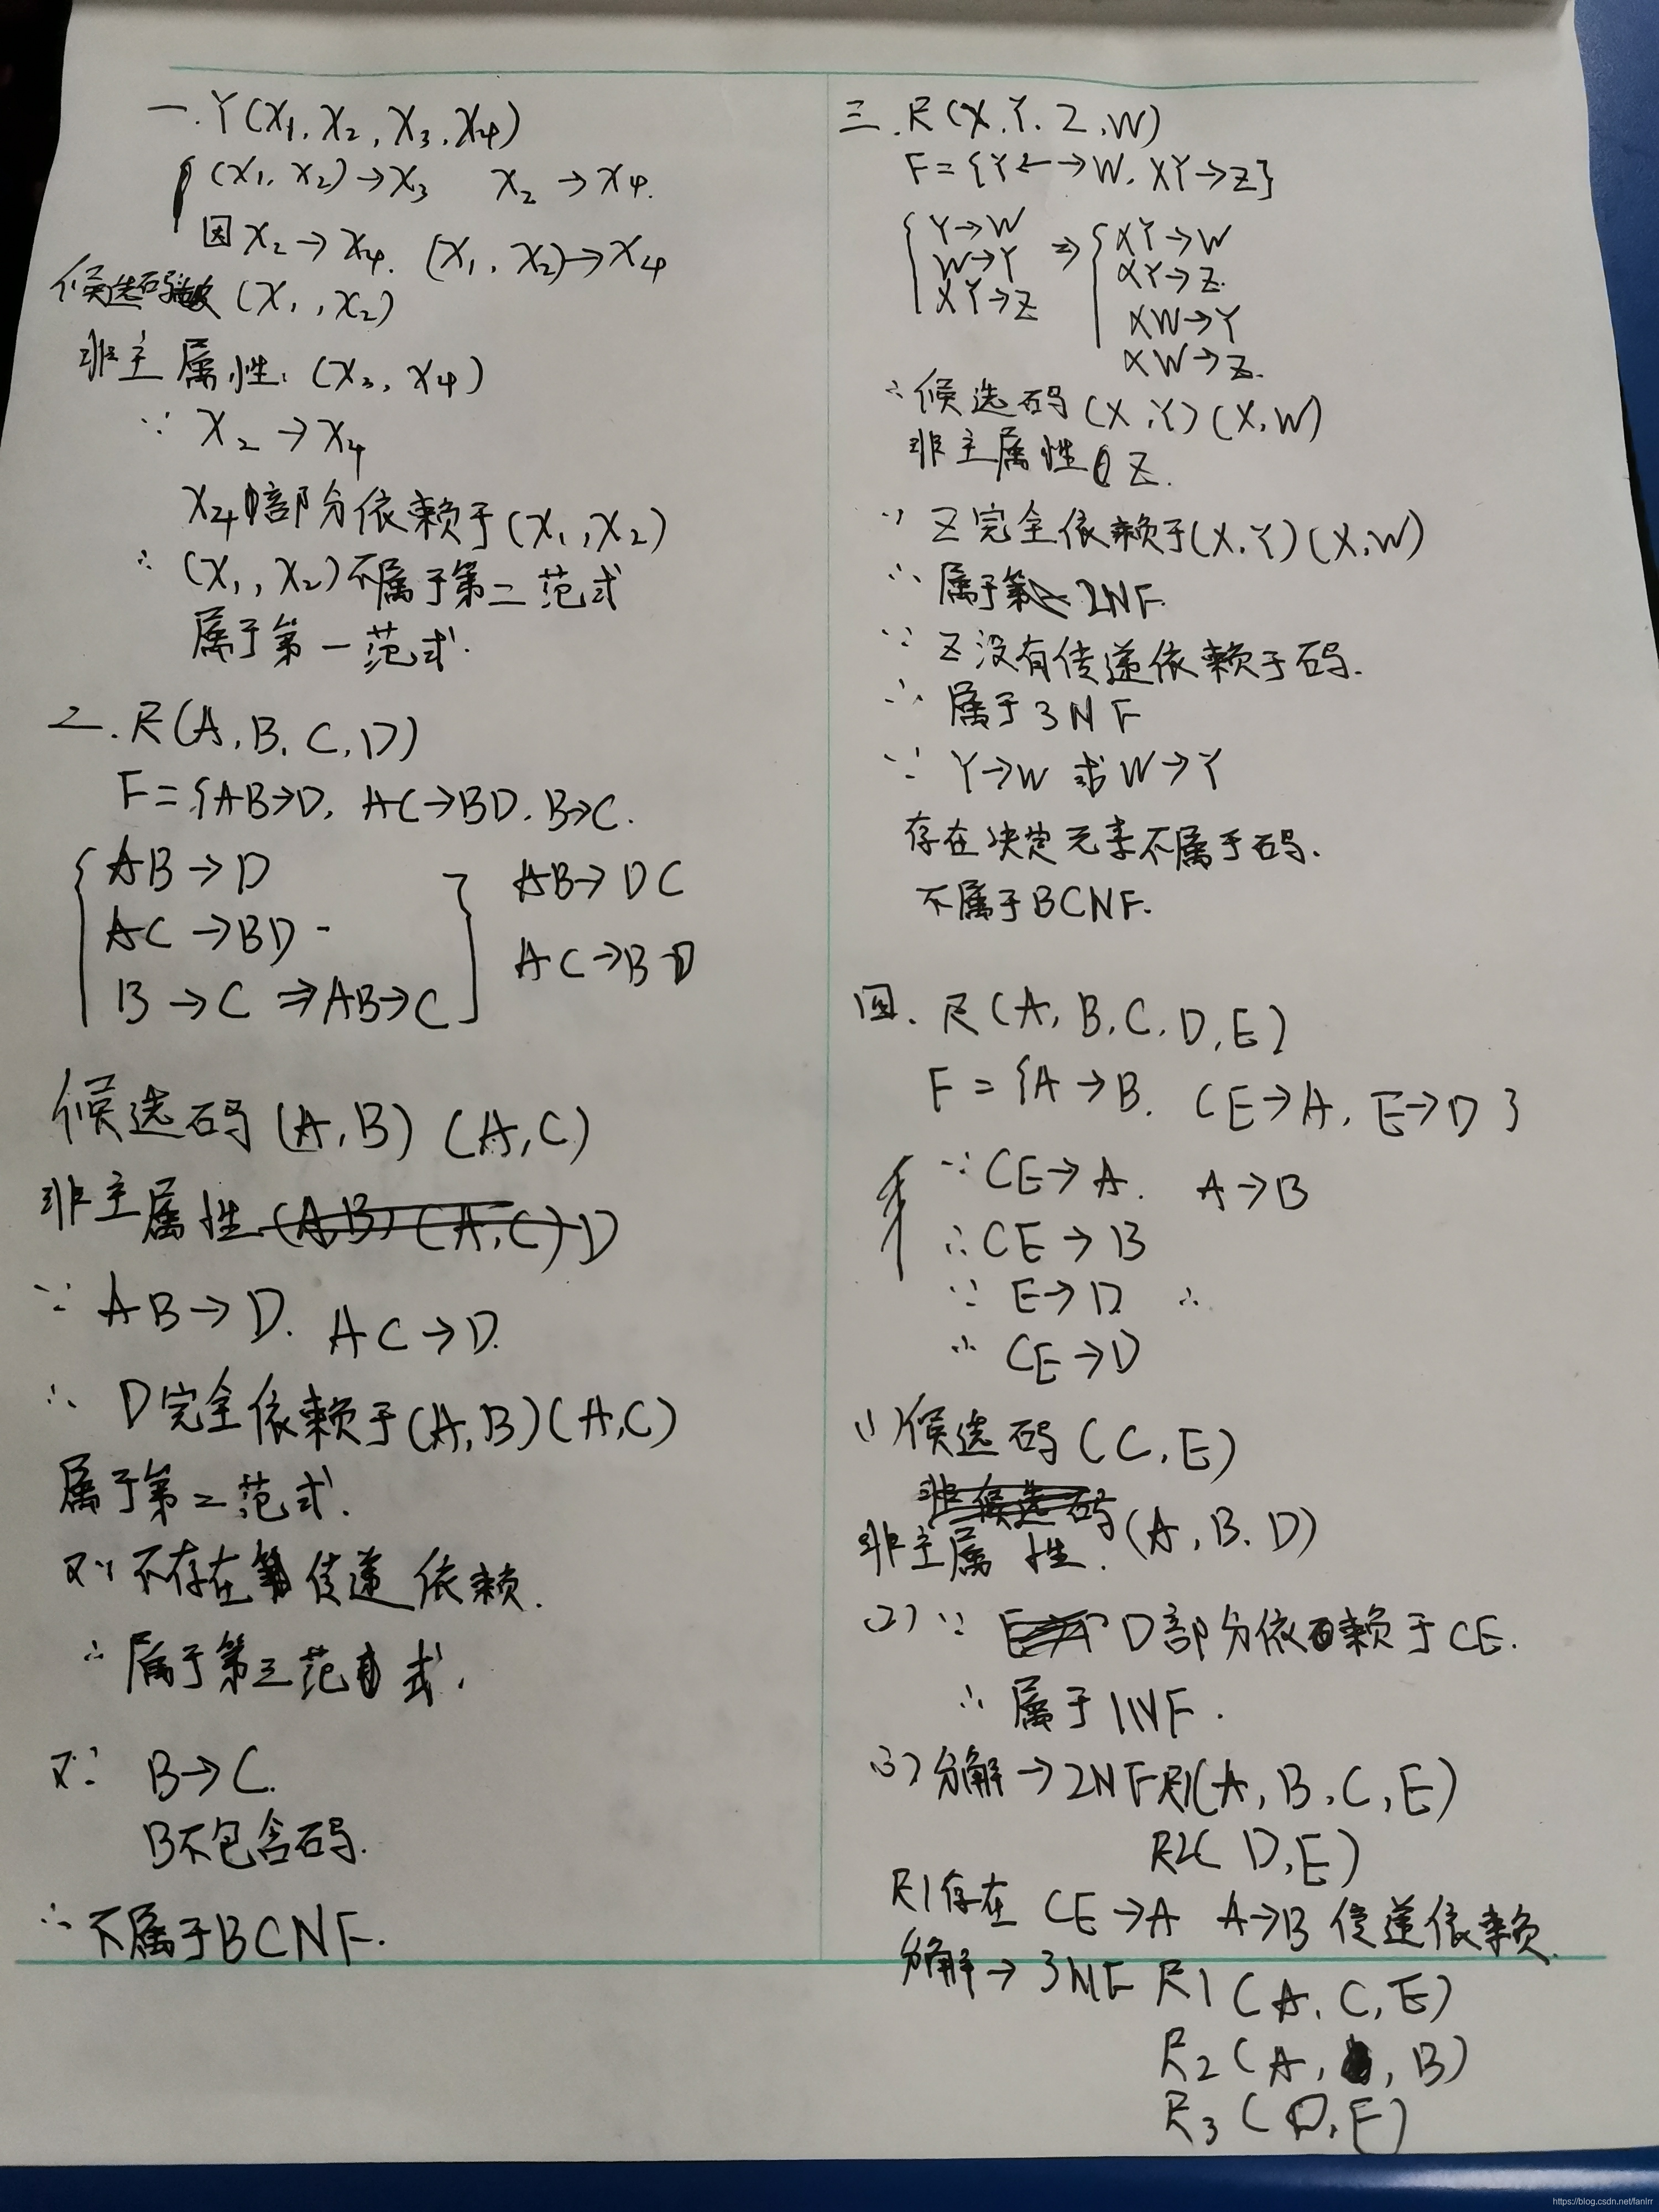 一.Y(X1,X2,X3,X4)
(X1,X2)→X3 X2→X4.
因X2→X4. (X1,X2)→X4
候选码 (X1,X2)
非主属性:(X3,X4)
∵ X2→X4
X4部分依赖于(X1,X2)
∴ (X1,X2)不属于第二范式
属于第一范式.
二.R(A,B,C,D)
F={AB→D, AC→BD. B→C.
AB→D
AC→BD
B→C ⇒AB→C
AB→DC
AC→BD
候选码(A,B) (A,C)
非主属性 (A,B) (A,C) D
∵ AB→D. AC→D.
∴ D完全依赖于(A,B)(A,C)
属于第二范式.
又∵不存在传递依赖.
∴属于第三范式.
又∵ B→C.
B不包含码.
∴不属于BCNF.
三.R(X.Y.Z,W)
F={Y←→W. XY→Z}
Y→W
W→Y
XY→Z
⇒
XY→W
XY→Z.
XW→Y
XW→Z.
∴候选码(X,Y)(X,W)
非主属性 Z.
∵ Z完全依赖于(X,Y)(X,W)
∴ 属于2NF.
∵ Z没有传递依赖于码.
∴ 属于3NF
∵ Y→W 或W→Y
存在决定元素不属于码.
不属于BCNF.
四. R(A,B,C,D,E)
F={A→B. CE→A, E→D}
∵CE→A. A→B
∴CE→B
∵ E→D ∴
∴ CE→D
(1)候选码(C,E)
非候选码
非主属性.(A,B.D)
(2)∵ D部分依赖于CE.
∴ 属于1NF.
(3)分解→2NF R1(A,B,C,E)
R2(D,E)
R1存在 CE→A A→B传递依赖.
分解→3NF R1(A,C,E)
R2(A, ,B)
R3(D,E)
https://blog.csdn.net/fanlrr